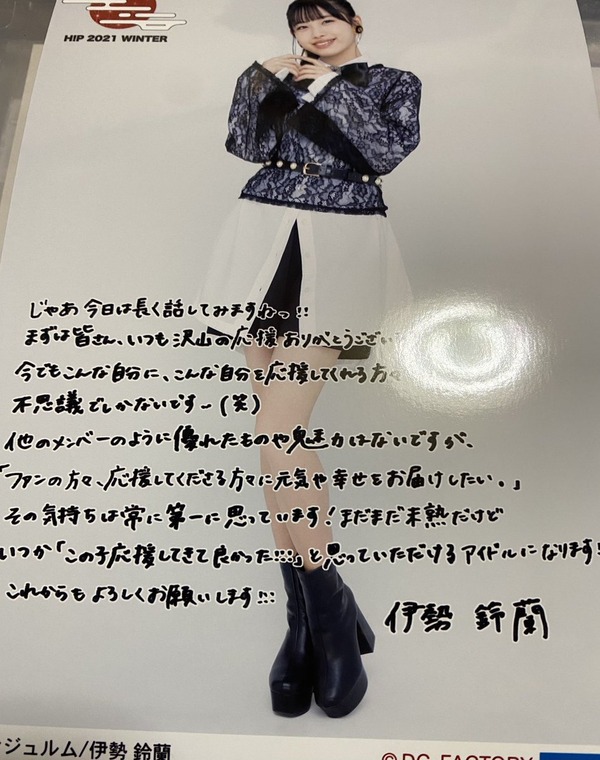 HIP 2021 WINTER
じゃあ今日は長く話してみますねっ!!
まずは皆さん、いつも沢山の応援ありがとうござい
今でもこんな自分に、こんな自分を応援してくれる方々
不思議でしかないですー(笑)
他のメンバーのように優れたものや魅力はないですが、
「ファンの方々、応援してくださる方々に元気や幸せをお届けしたい。」
その気持ちは常に第一に思っています!まだまだ未熟だけど
いつか「この子応援してきて良かった!!!」と思っていただけるアイドルになります!!
これからもよろしくお願いします!!!
伊勢 鈴蘭
ンジュルム/伊勢 鈴蘭
©DC FACTORY